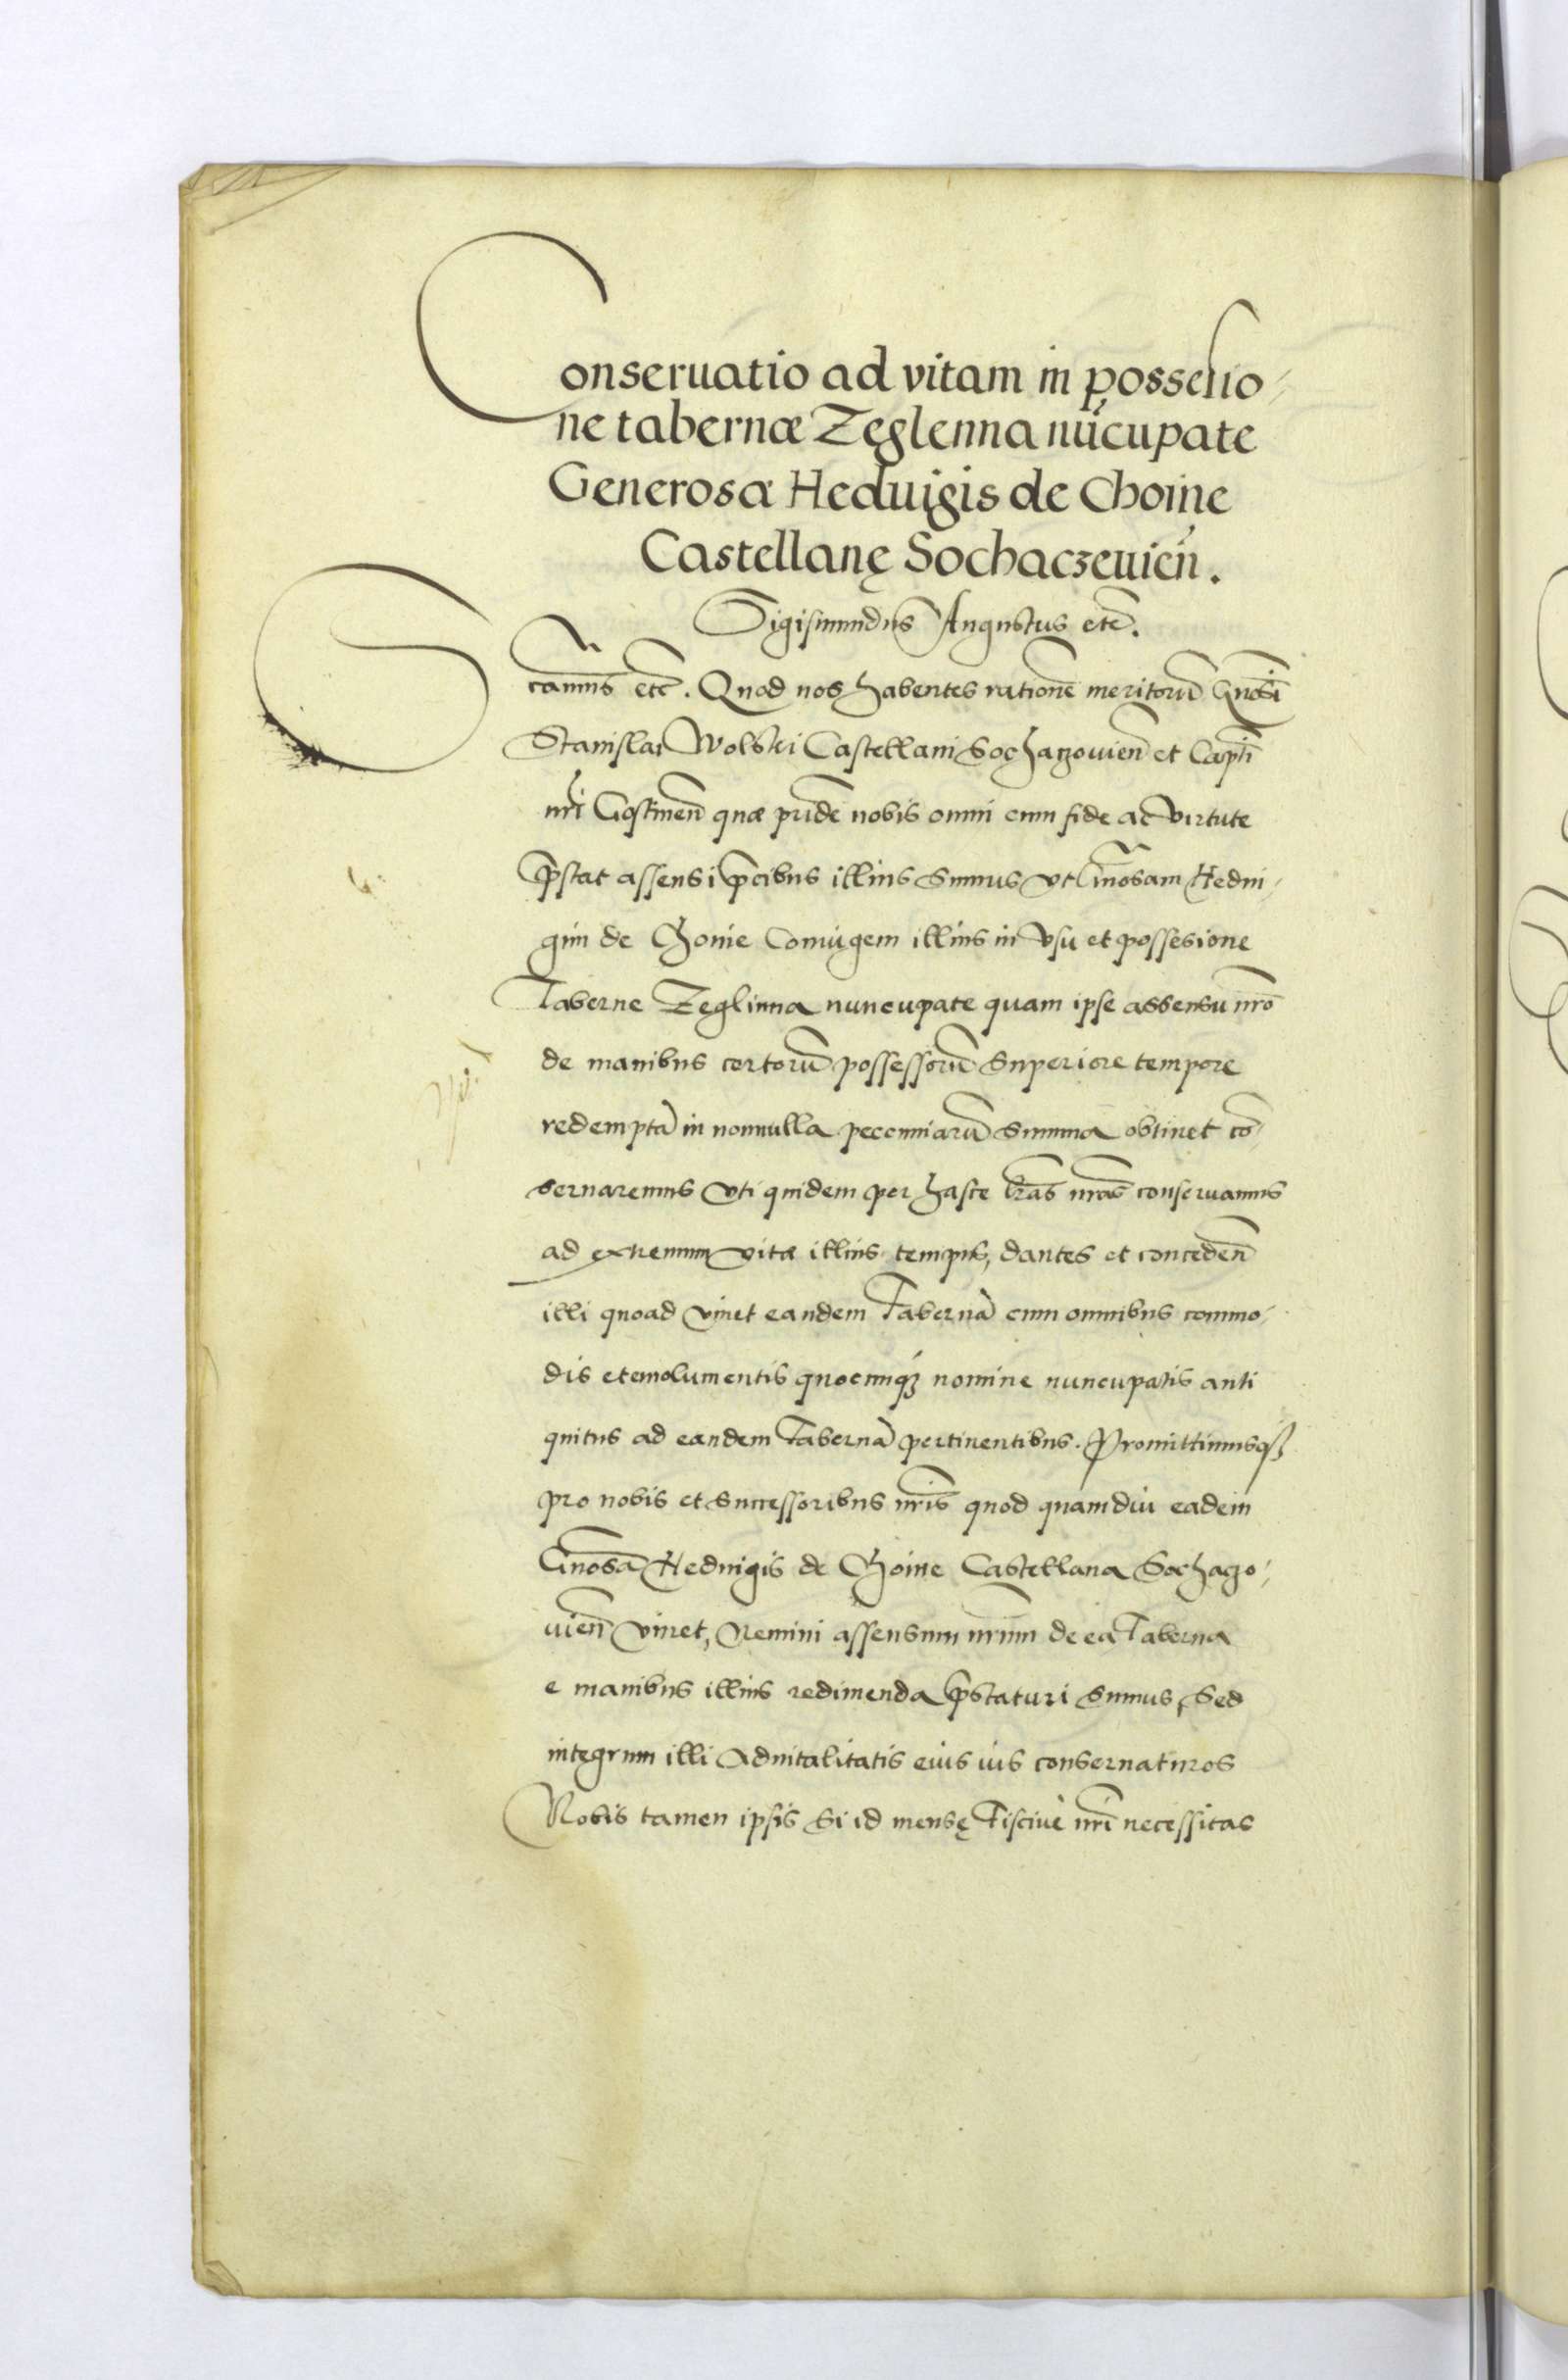 Conseruatio ad vitam in possessio-
ne tabernæ Zęglenna nūcupate
Generosæ Heduigis de Choine
Castellanę Sochaczeuień.
Sigismundus Augustus etc̄.
Significamus etc̄. Quod nos habentes rationē meritorū Gnōsi
Stanislai Wolski Castellani Sochaczouien̄ et Capti
nr̄i Gostinen̄ quæ pridē nobis omni cum fide ac virtute
p̄stat assensi p̄cibus illius sumus vt Gn̄osam Hedui-
gim de Choine Coniugem illius in vsu et possesione
Taberne Zęglinna nuncupate quam ipse assensu nr̄o
de manibus certorū possessorū superiore tempore
redemptā in nonnulla pecunniarū summa obtinet cō-
seruaremus vti quidem per hasce lr̄as nr̄as conseruamus
ad extremum vitæ illius tempus, dantes et conceden̄
illi quoad viuet eandem Tabernā cum omnibus commo-
dis et emolumentis quocunqȝ nomine nuncupatis anti
quitus ad eandem Tabernā pertinentibus. Promittimusqȝ
pro nobis et successoribus nr̄is quod quamdiu eadem
Gn̄osa Heduigis de Choine Castellana Sochaczo-
uien̄ viuet, Nemini assensum nr̄um de ea Taberna
e manibus illius redimenda p̄staturi sumus, Sed
integrum illi aduitalitatis eius ius conseruaturos
Nobis tamen ipsis si id mensę Fisciue nr̄i necessitas